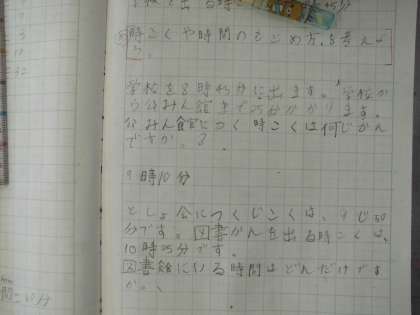 時こくや時間のもとめ方を考えよ
う。
学校を8時45分に出ます。学校か
ら公みん館まで25分かかります。
公みん館につく時こくは何じかん
ですか。
9時10分
としょ会につくじこくは、9じ50
分です。図書かんを出る時こくは、
10時25分です。
図書館にいる時間はどんだけです
か。